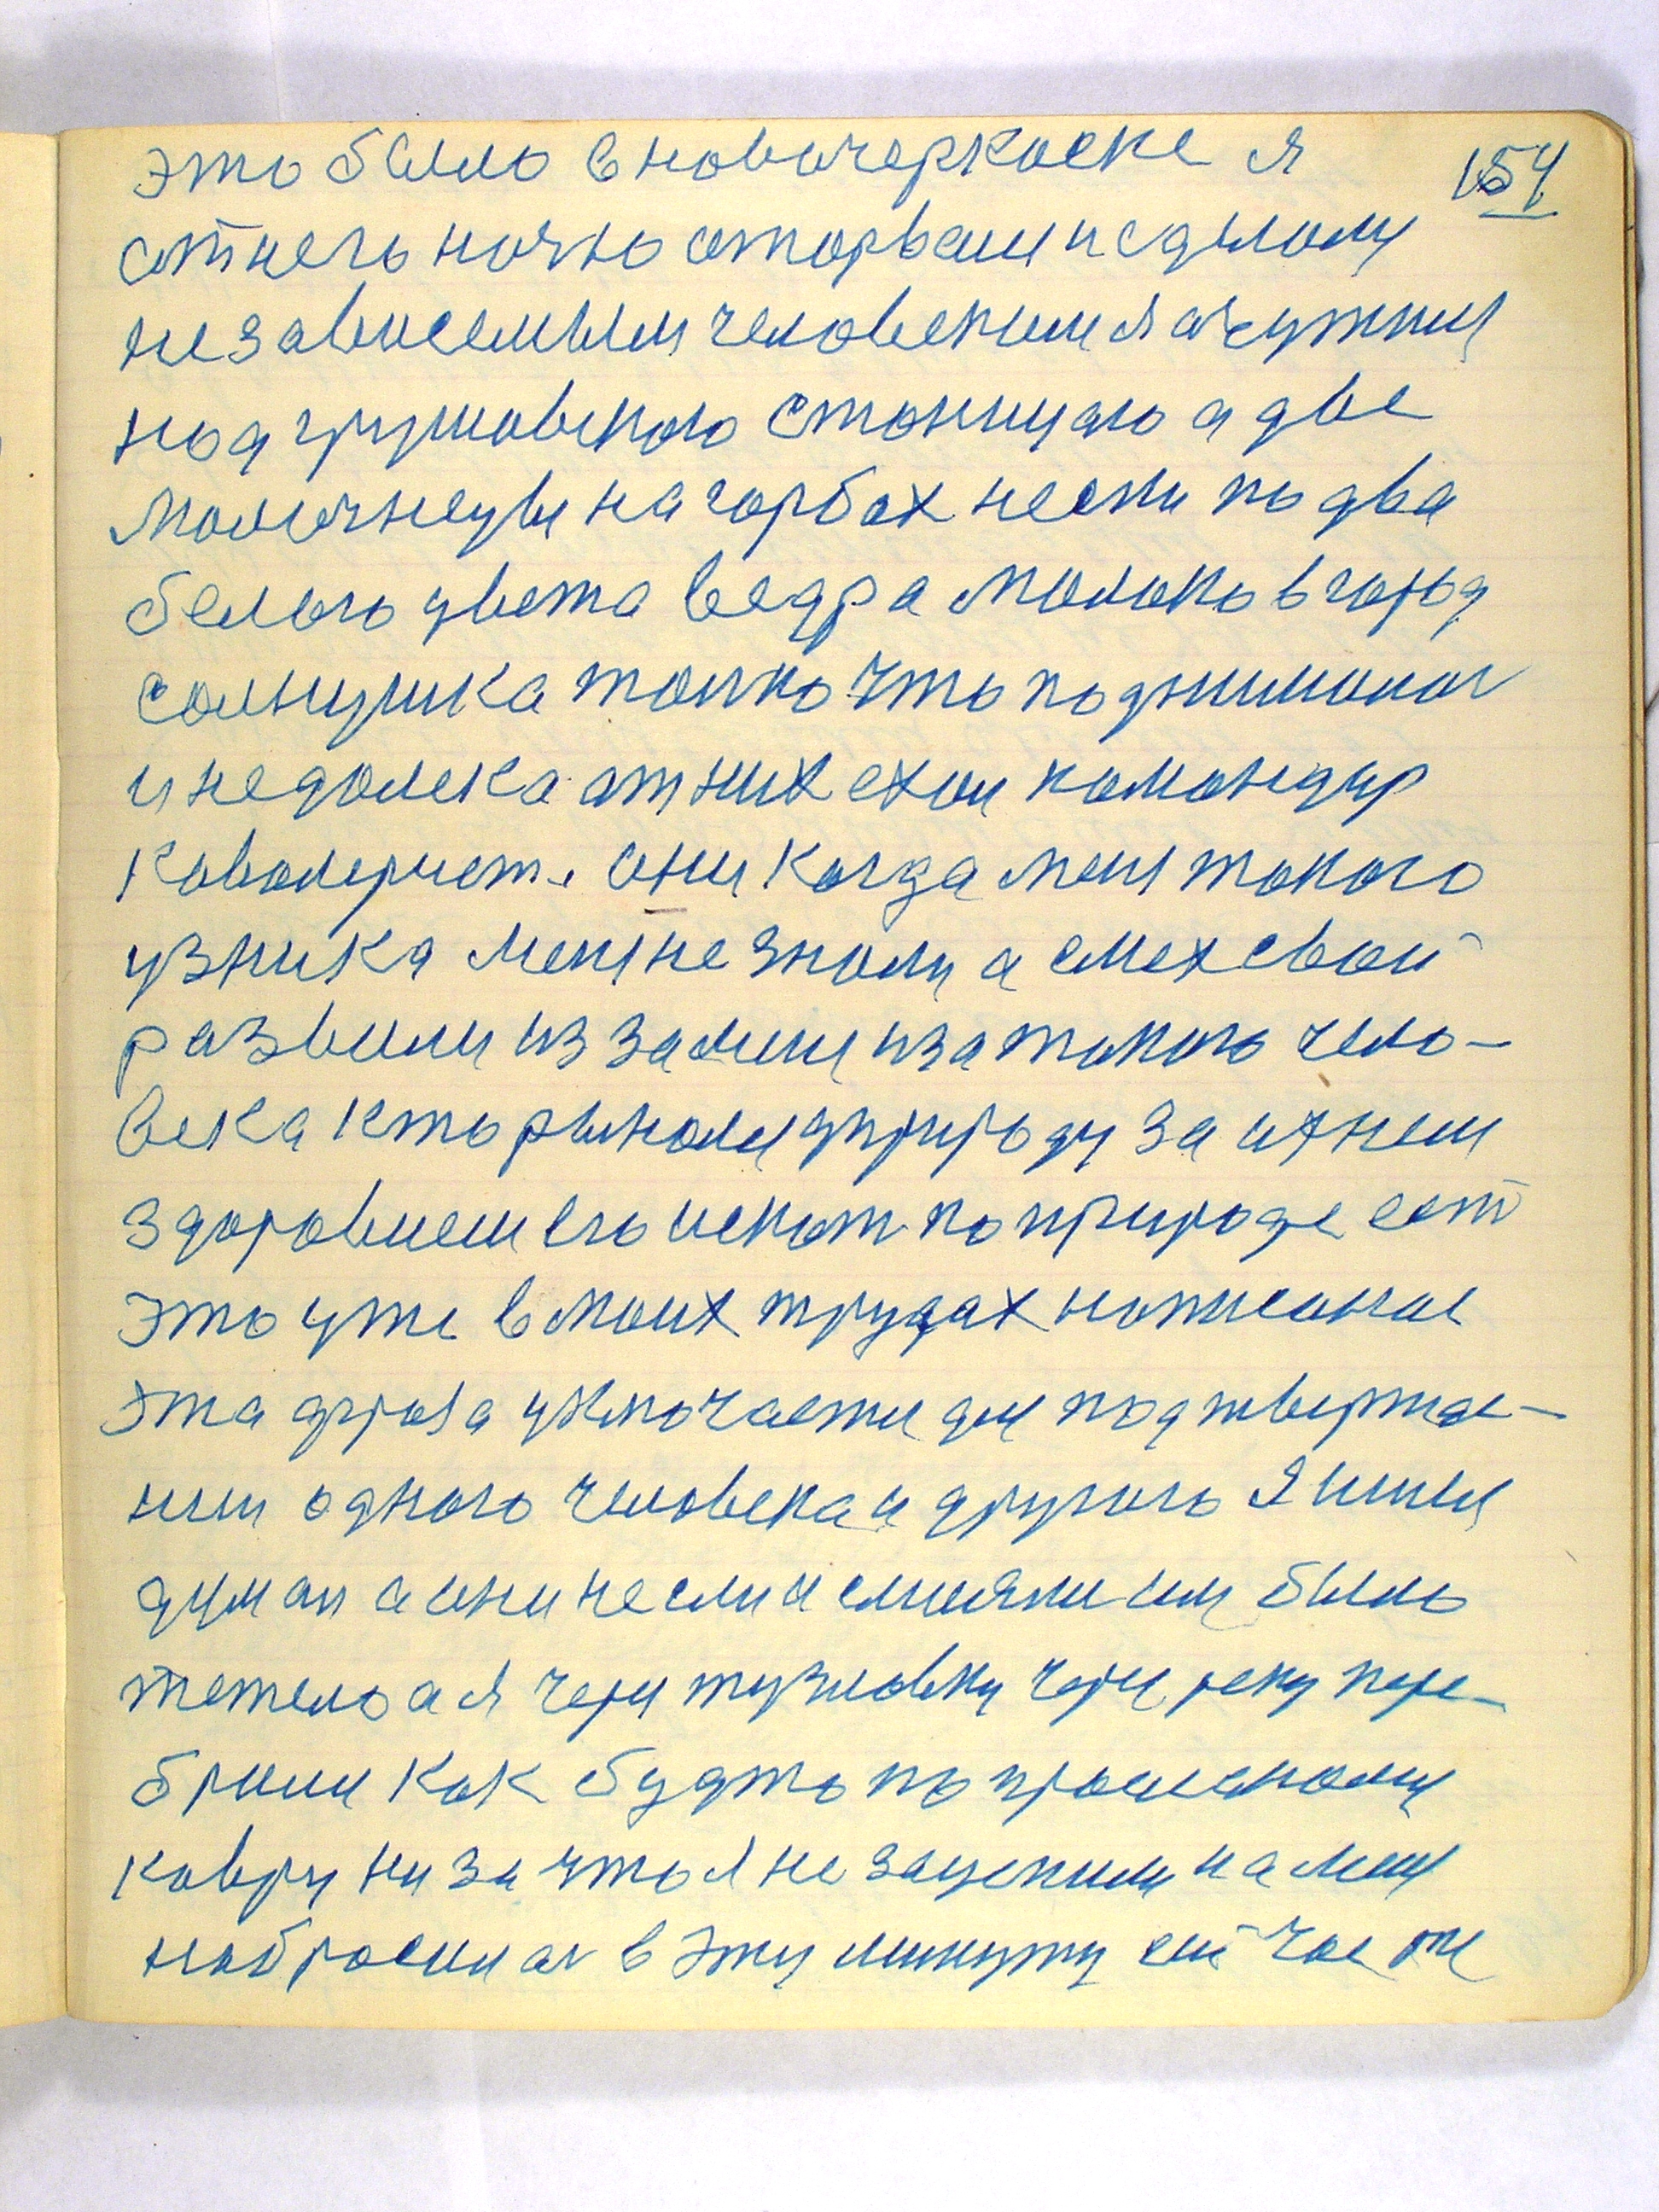 154
это было в новочеркаске я
от него ночью оторвали и сделали
независемым человеком я очутился
под грушовскою станицаю а две
молочнецы на горбах несли по два
белого цвета ведра молоко в город
солнушка толко что поднималас
и недолека от них ехал командир
каволерист. они когда меня такого
узника меня не знали а смех свой
развили из за меня из за такого чело-
века кто рынался природу за ихнем
здоровием его искат по природе ест
это уже в моих трудах написаное
эта фроза уключается для подтвержде-
ния одного человека и другого Я имел
думал а они несли и смияли им было
тежело а я через тузловку через реку пере-
брили как будто по
ковру ни за что я не зацепили на меня
набросилас в эту минуту